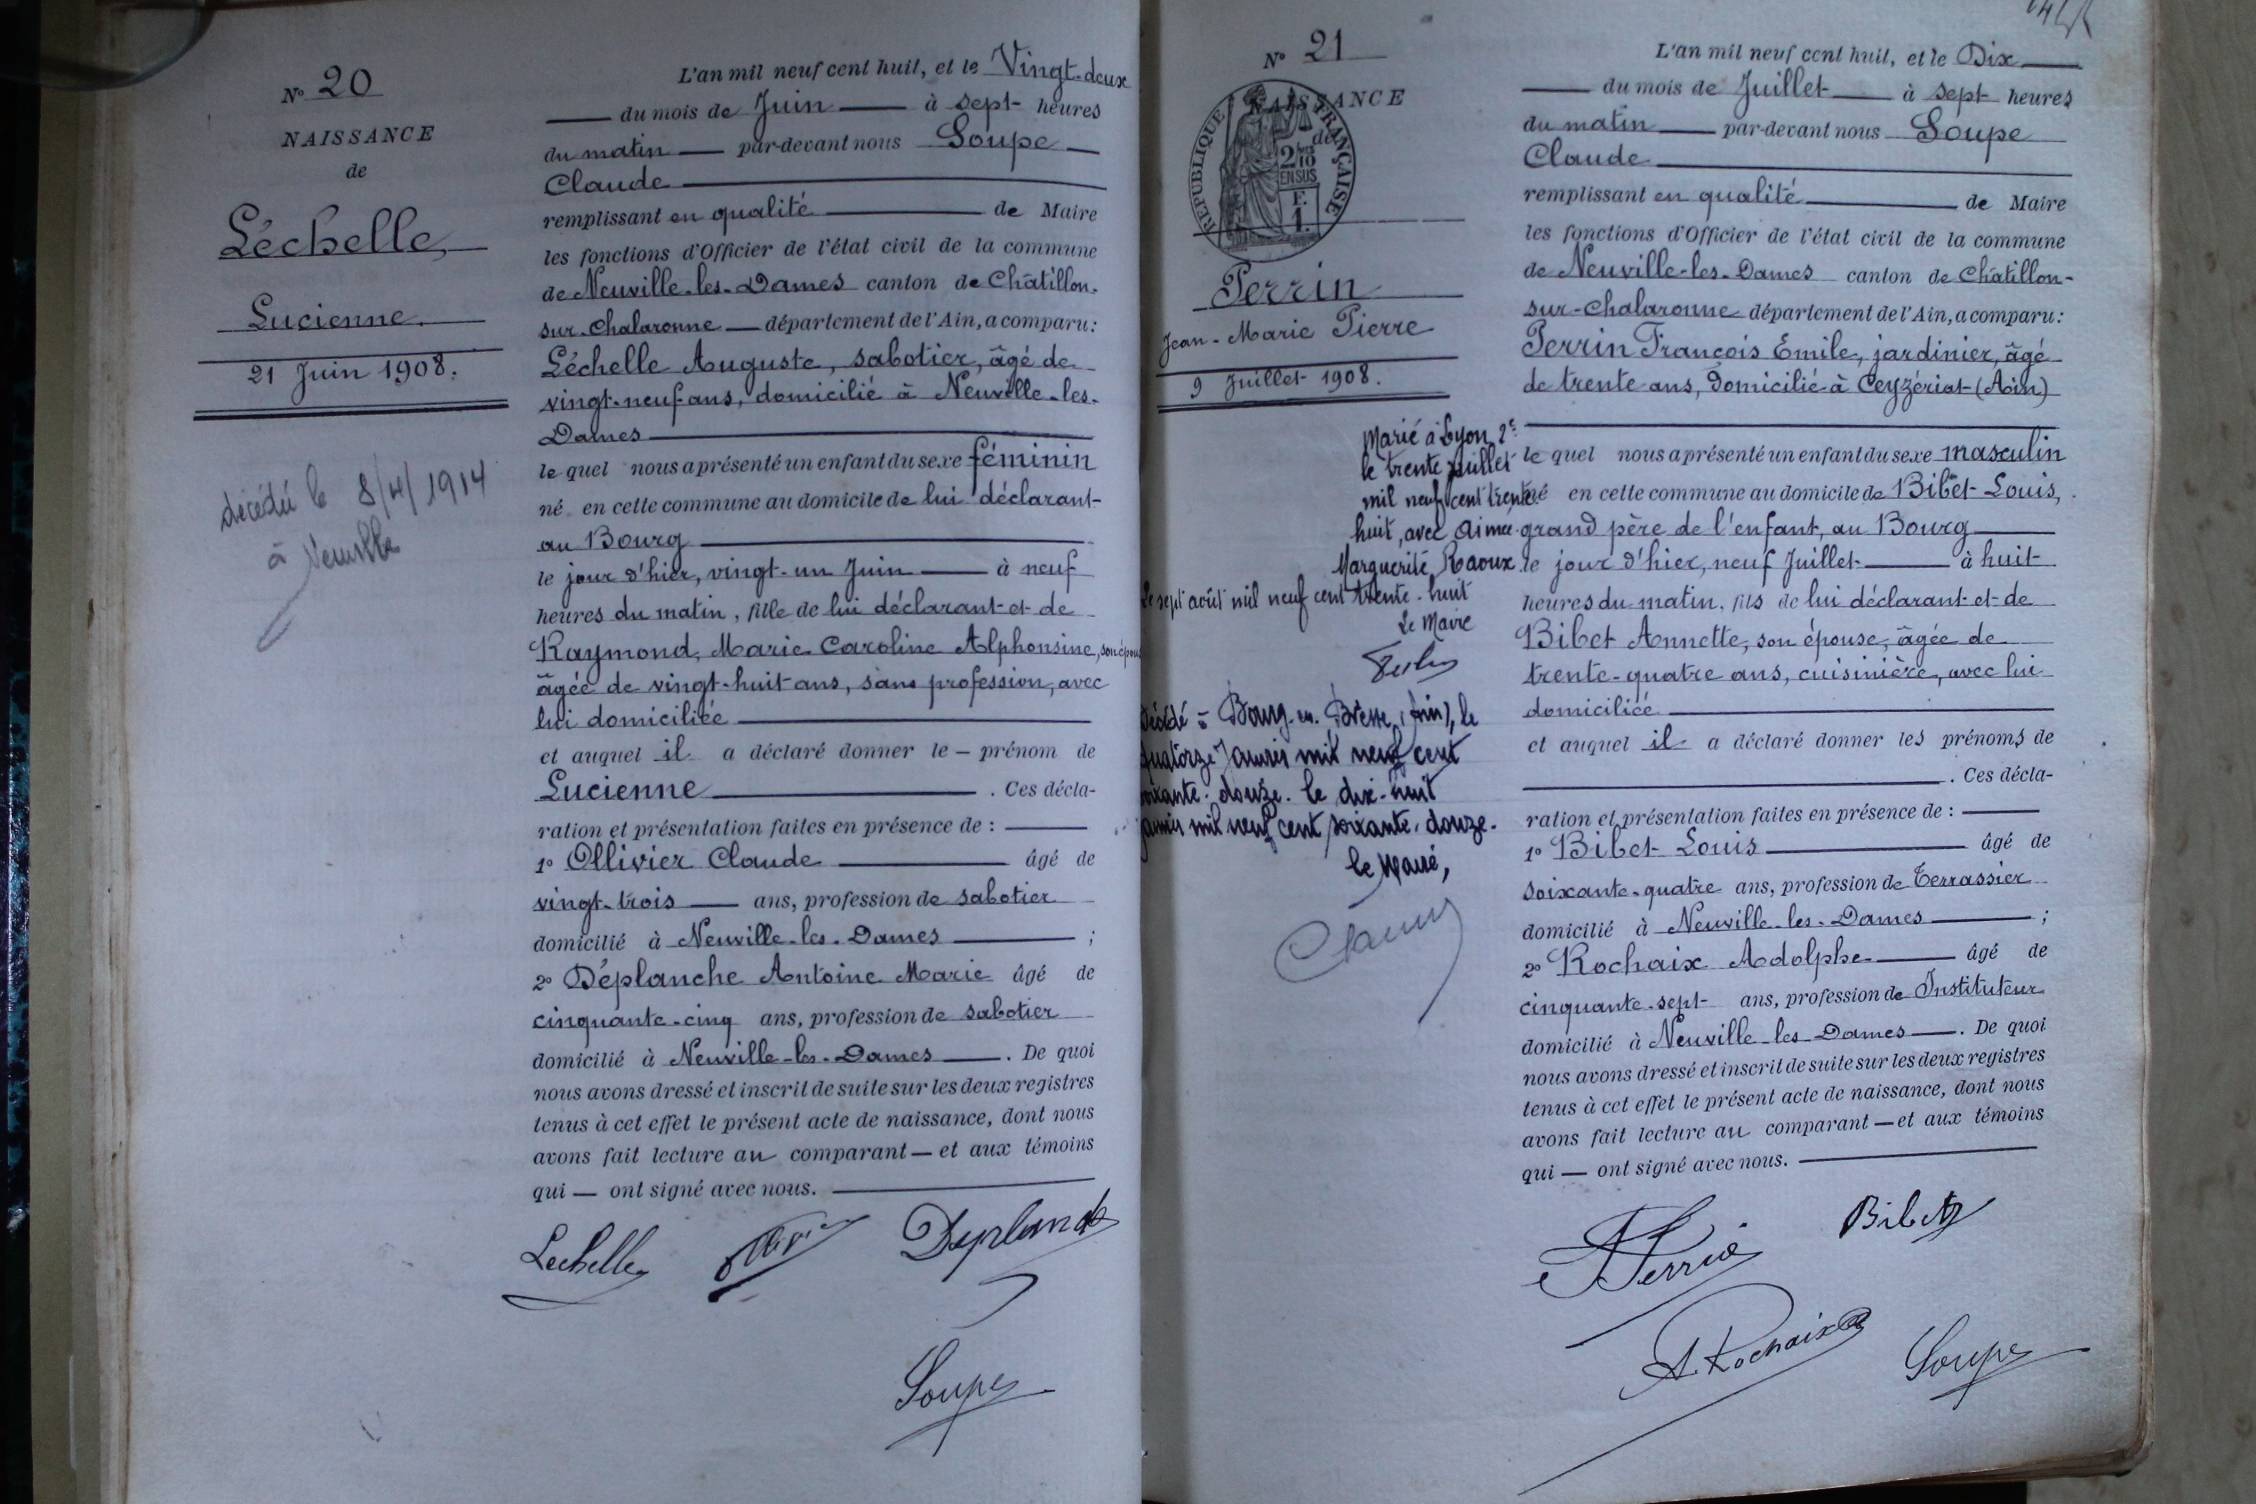 N° 20
NAISSANCE
de
Léchelle
Lucienne.
21 Juin 1908.
décédée le 8/4/1914
à Neuville
L'an mil neuf cent huit, et le Vingt-deux
du mois de Juin à sept heures
du matin par-devant nous Soupe
Claude
remplissant en qualité de Maire
les fonctions d'Officier de l'état civil de la commune
de Neuville-les-Dames canton de Châtillon-
sur-Chalaronne département de l'Ain, a comparu:
Léchelle Auguste, sabotier, âgé de
vingt-neuf ans, domicilié à Neuville-les-
Dames
le quel nous a présenté un enfant du sexe féminin
né en cette commune au domicile de lui déclarant
au Bourg
le jour d'hier, vingt-un Juin à neuf
heures du matin, fille de lui déclarant et de
Raymond, Marie Caroline Alphonsine, son épouse
âgée de vingt-huit ans, sans profession, avec
lui domiciliée
et auquel il a déclaré donner le – prénom de
Lucienne. Ces décla-
ration et présentation faites en présence de :
1° Ollivier Claude âgé de
vingt-trois ans, profession de sabotier
domicilié à Neuville-les-Dames ;
2° Déplanche Antoine Marie âgé de
cinquante-cinq ans, profession de sabotier
domicilié à Neuville-les-Dames. De quoi
nous avons dressé et inscrit de suite sur les deux registres
tenus à cet effet le présent acte de naissance, dont nous
avons fait lecture au comparant — et aux témoins
qui — ont signé avec nous.
Lechelle Déplanche
Soupe
N° 21
NAISSANCE
de
REPUBLIQUE FRANÇAISE
2/10 EN SUS
F. 1.
Perrin
Jean-Marie Pierre
9 Juillet 1908.
Marié à Lyon 2e
le trente juillet
mil neuf cent trente
huit, avec Aimée
Marguerite Raoux
Le sept août mil neuf cent trente-huit
Le Maire
Décédé à Bourg-en-Bresse (Ain), le
quatorze Janvier mil neuf cent
soixante-douze. le dix-huit
janvier mil neuf cent soixante-douze.
le Maire,
L'an mil neuf cent huit, et le Dix
du mois de Juillet à sept heures
du matin par-devant nous Soupe
Claude
remplissant en qualité de Maire
les fonctions d'Officier de l'état civil de la commune
de Neuville-les-Dames canton de Châtillon-
sur-Chalaronne département de l'Ain, a comparu:
Perrin François Emile, jardinier, âgé
de trente ans, domicilié à Ceyzériat (Ain)
le quel nous a présenté un enfant du sexe masculin
né en cette commune au domicile de Bibet Louis,
grand père de l'enfant, au Bourg
le jour d'hier, neuf Juillet à huit
heures du matin, fils de lui déclarant et de
Bibet Annette, son épouse, âgée de
trente-quatre ans, cuisinière, avec lui
domiciliée
et auquel il a déclaré donner les prénoms de
. Ces décla-
ration et présentation faites en présence de :
1° Bibet Louis âgé de
soixante-quatre ans, profession de Terrassier
domicilié à Neuville-les-Dames ;
2° Rochaix Adolphe âgé de
cinquante-sept ans, profession de Instituteur
domicilié à Neuville les Dames. De quoi
nous avons dressé et inscrit de suite sur les deux registres
tenus à cet effet le présent acte de naissance, dont nous
avons fait lecture au comparant — et aux témoins
qui — ont signé avec nous.
Perrin Bibet
A. Rochaix Soupe